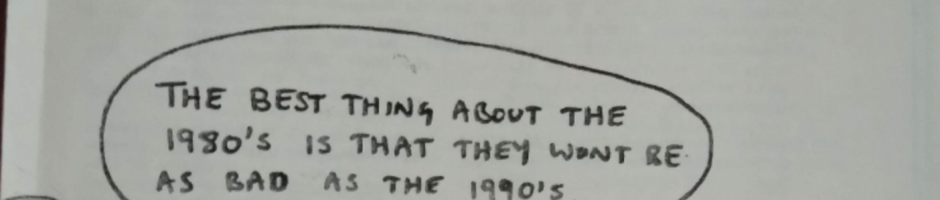 THE BEST THING ABOUT THE
1980'S IS THAT THEY WONT BE
AS BAD AS THE 1990'S